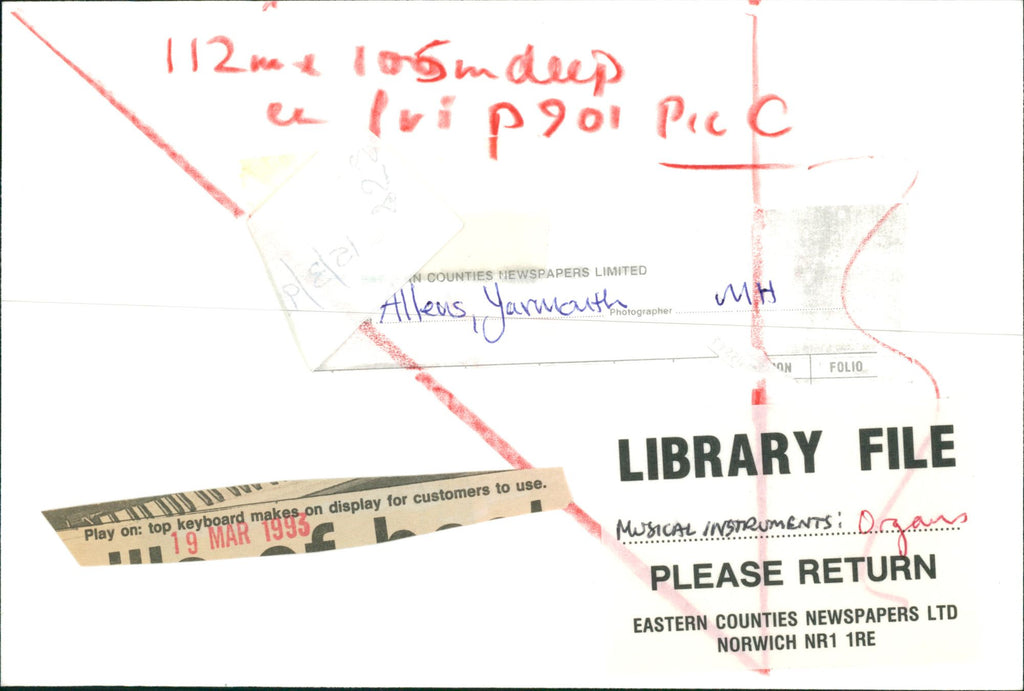 112mm x 105m deep
Fri p901 Pic C
N COUNTIES NEWSPAPERS LIMITED
Allens, Yarmouth Photographer MH
ON FOLIO
LIBRARY FILE
MUSICAL INSTRUMENTS: Organs
PLEASE RETURN
EASTERN COUNTIES NEWSPAPERS LTD
NORWICH NR1 1RE
Play on: top keyboard makes on display for customers to use.
19 MAR 1993